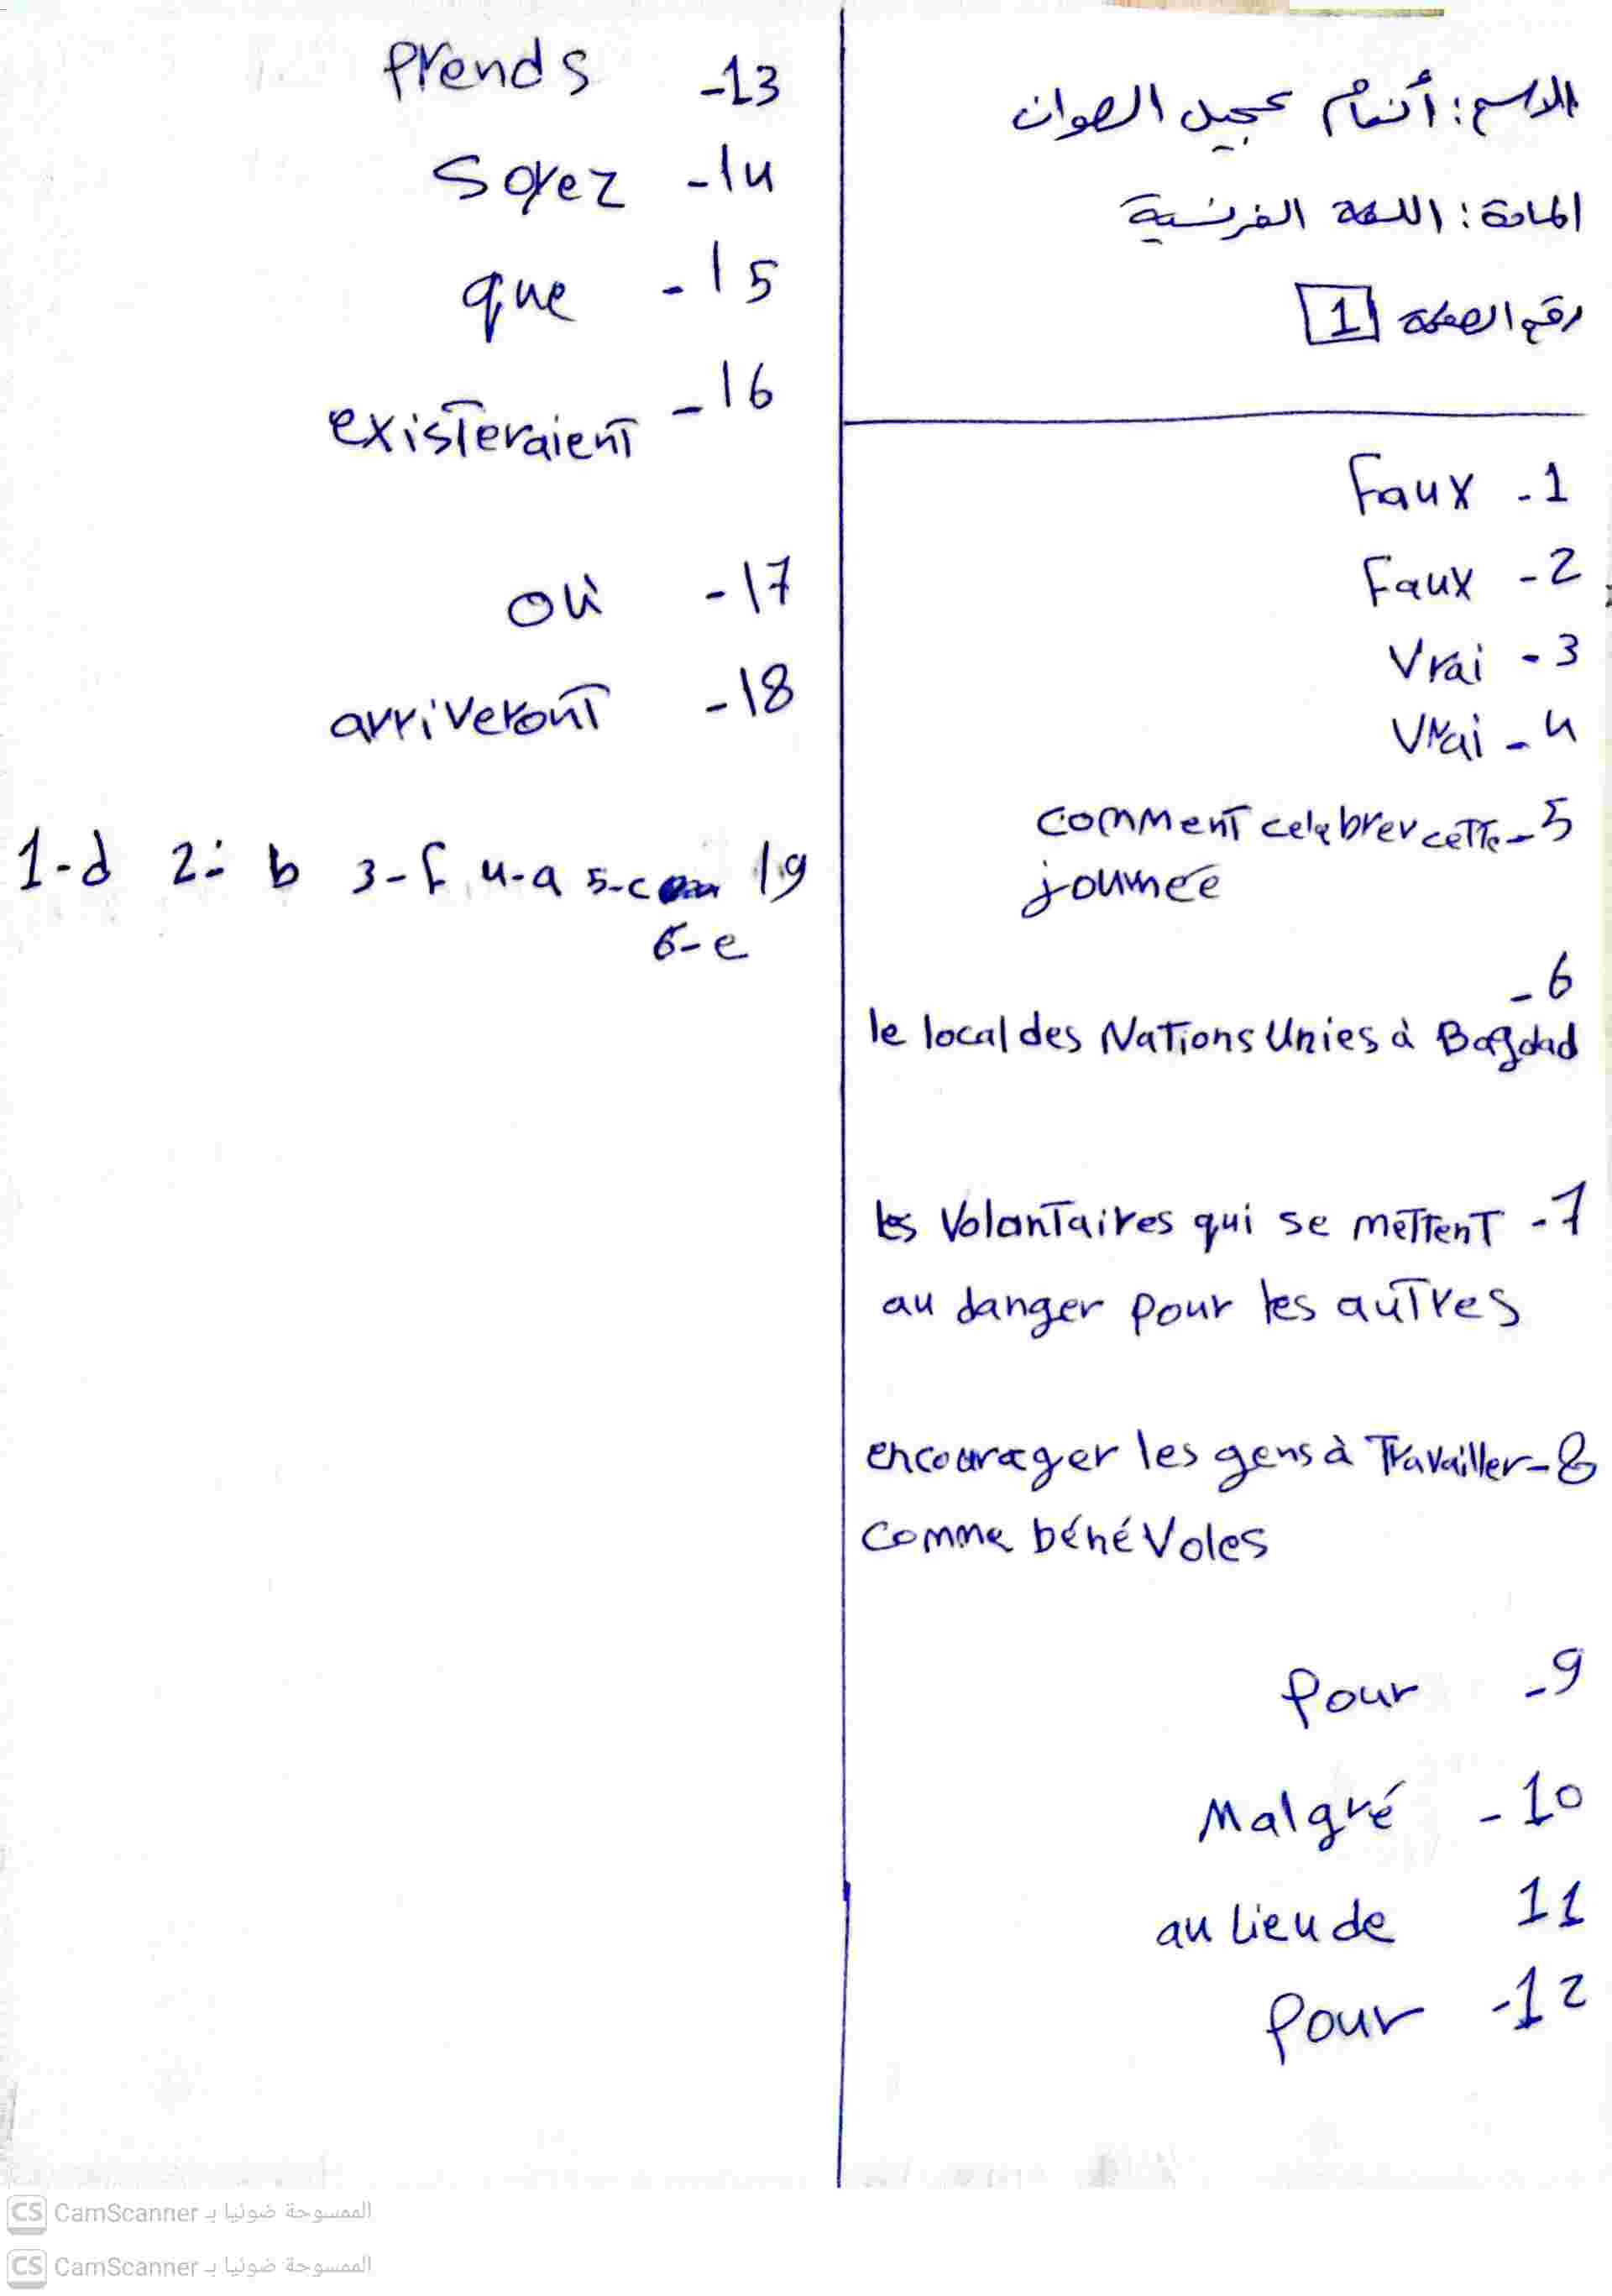 الاسم: أنعام عجيل الصوان
المادة: اللغة الفرنسية
رقم الصفحة 1
Faux -1
Faux -2
Vrai -3
Vrai -4
comment celebrer cette -5
journée
-6
le local des Nations Unies à Bagdad
les Volontaires qui se mettent -7
au danger pour les autres
encourager les gens à Travailler -8
comme bénéVoles
pour -9
Malgré -10
au lieu de 11
pour -12
Prends -13
Soyez -14
que -15
existeraient -16
où -17
arriveront -18
1-d 2- b 3-f 4-a 5-c 19
6-e
CS CamScanner الممسوحة ضوئيا بـ
CS CamScanner الممسوحة ضوئيا بـ